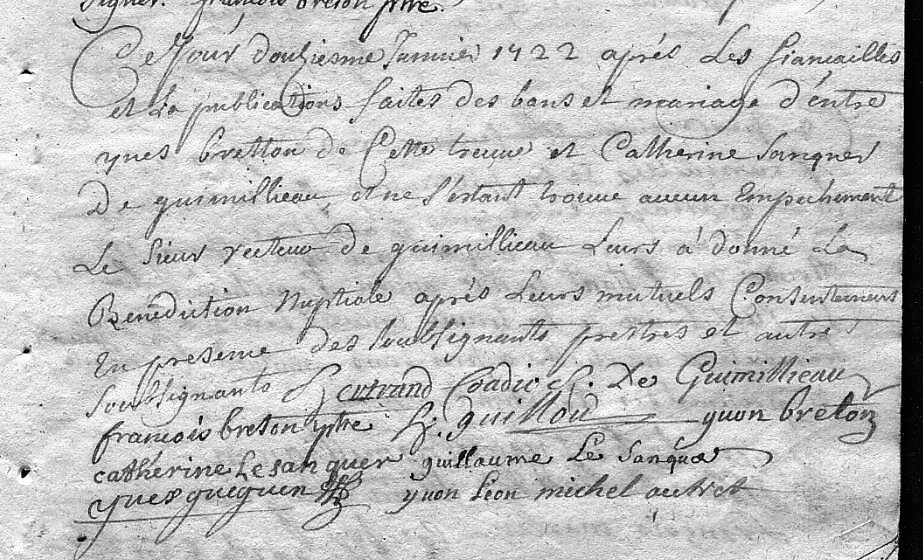 signer. françois breton ptre.
Ce Jour douziesme Janvier 1722 aprés Les fiançailles
et La publications faites des bans et mariage d'entre
yves bretton de Cette treuve et Catherine Sanquer
De guimillieau, et ne s'estant trouvé aucun Empechement
Le Sieur recteur De guimillieau Leurs à donné La
Benediction Nuptiale aprés Leurs mutuels Consentement
En presence des soubsignants prestres et autre
soubsignants Bertrand Coadic De Guimillieau
francois breton ptre guillou yvon breton
catherine Le sanquer guillaume Le Sanquer
yves gueguen yvon Leon michel autret